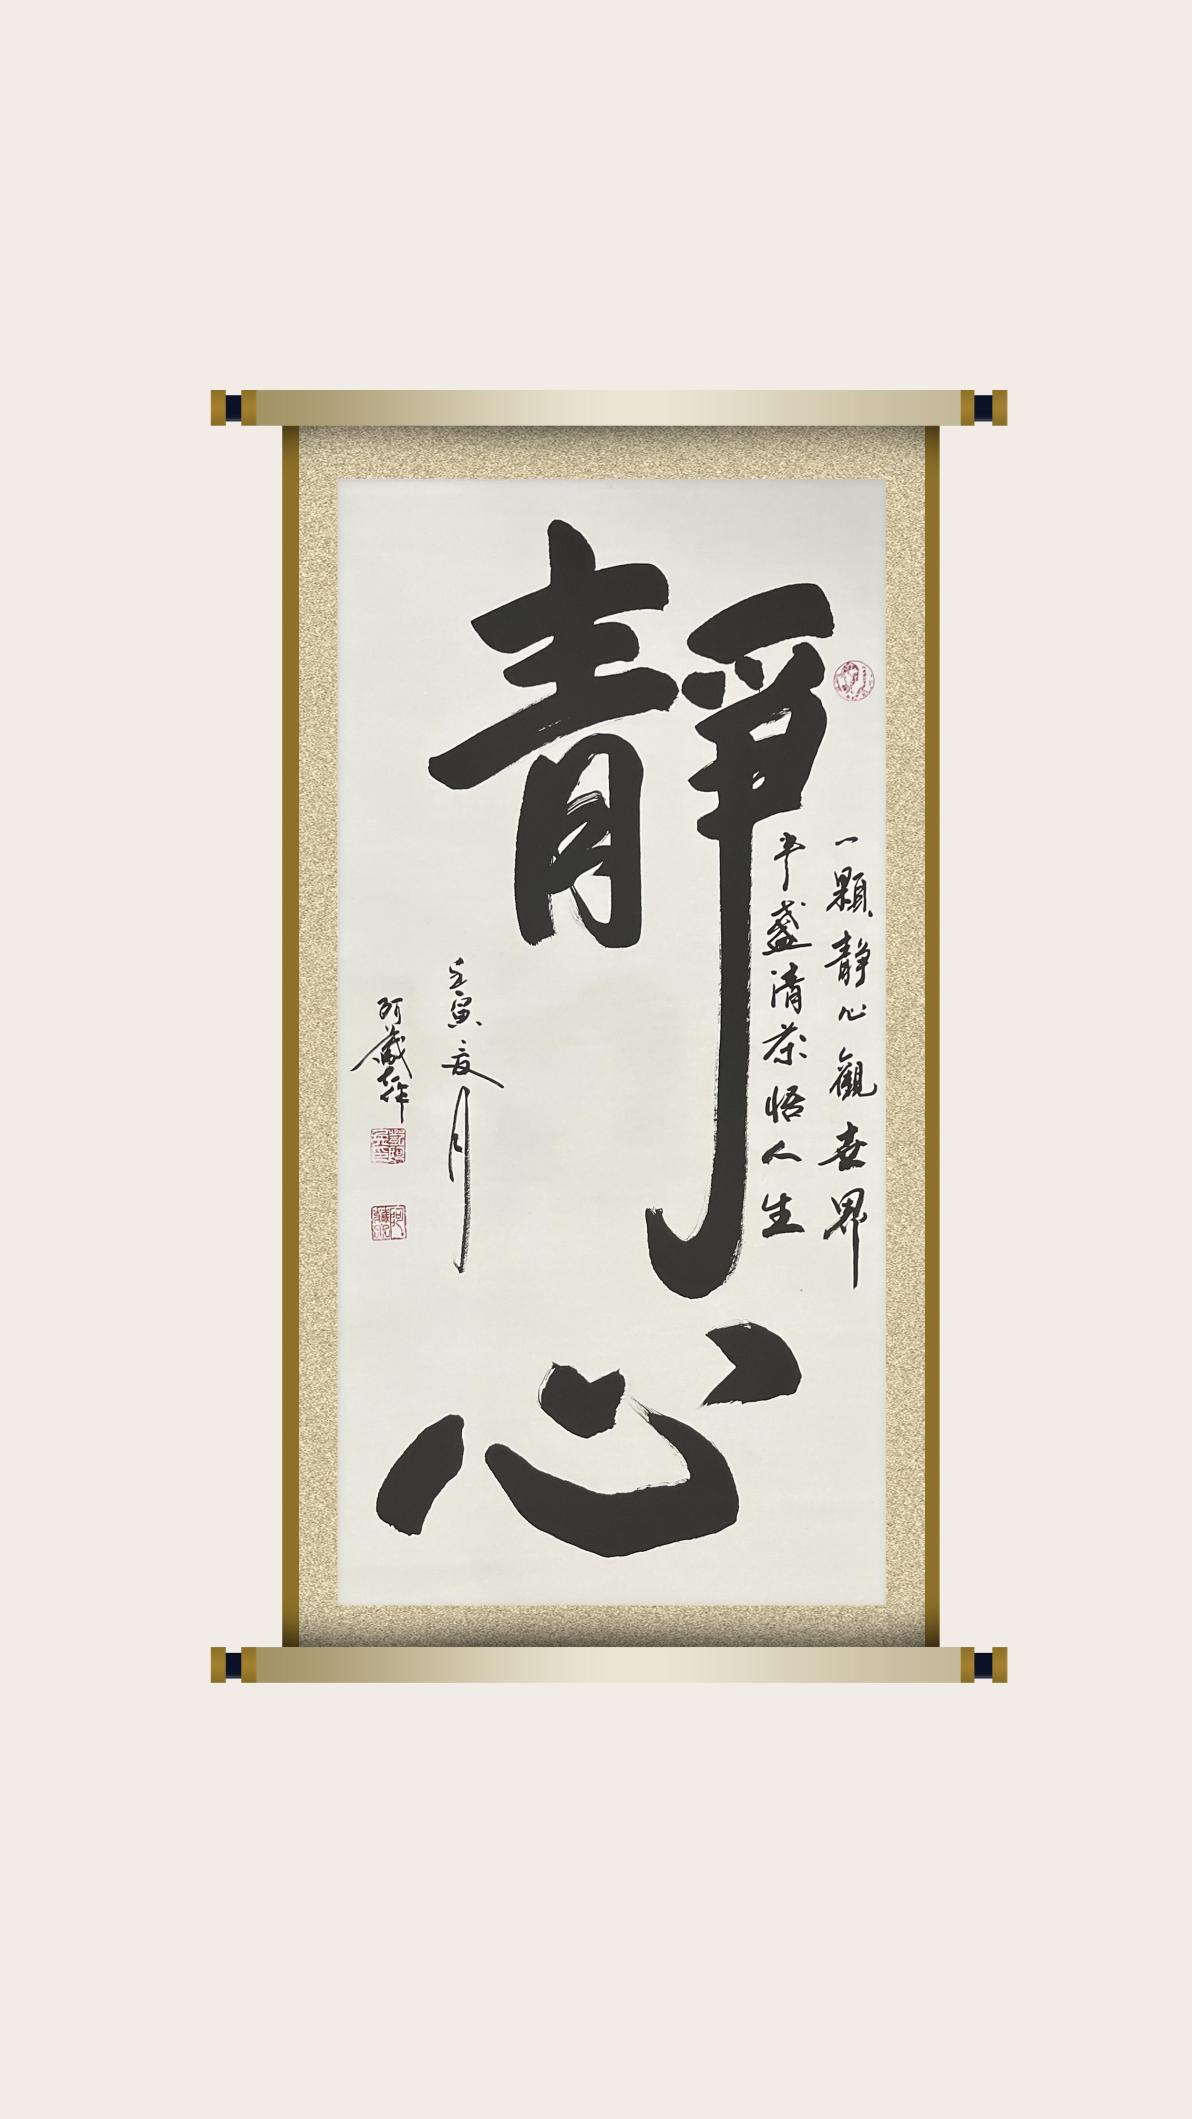 靜心
一顆静心觀世界
半盞清茶悟人生
壬寅夏月
阿藏作